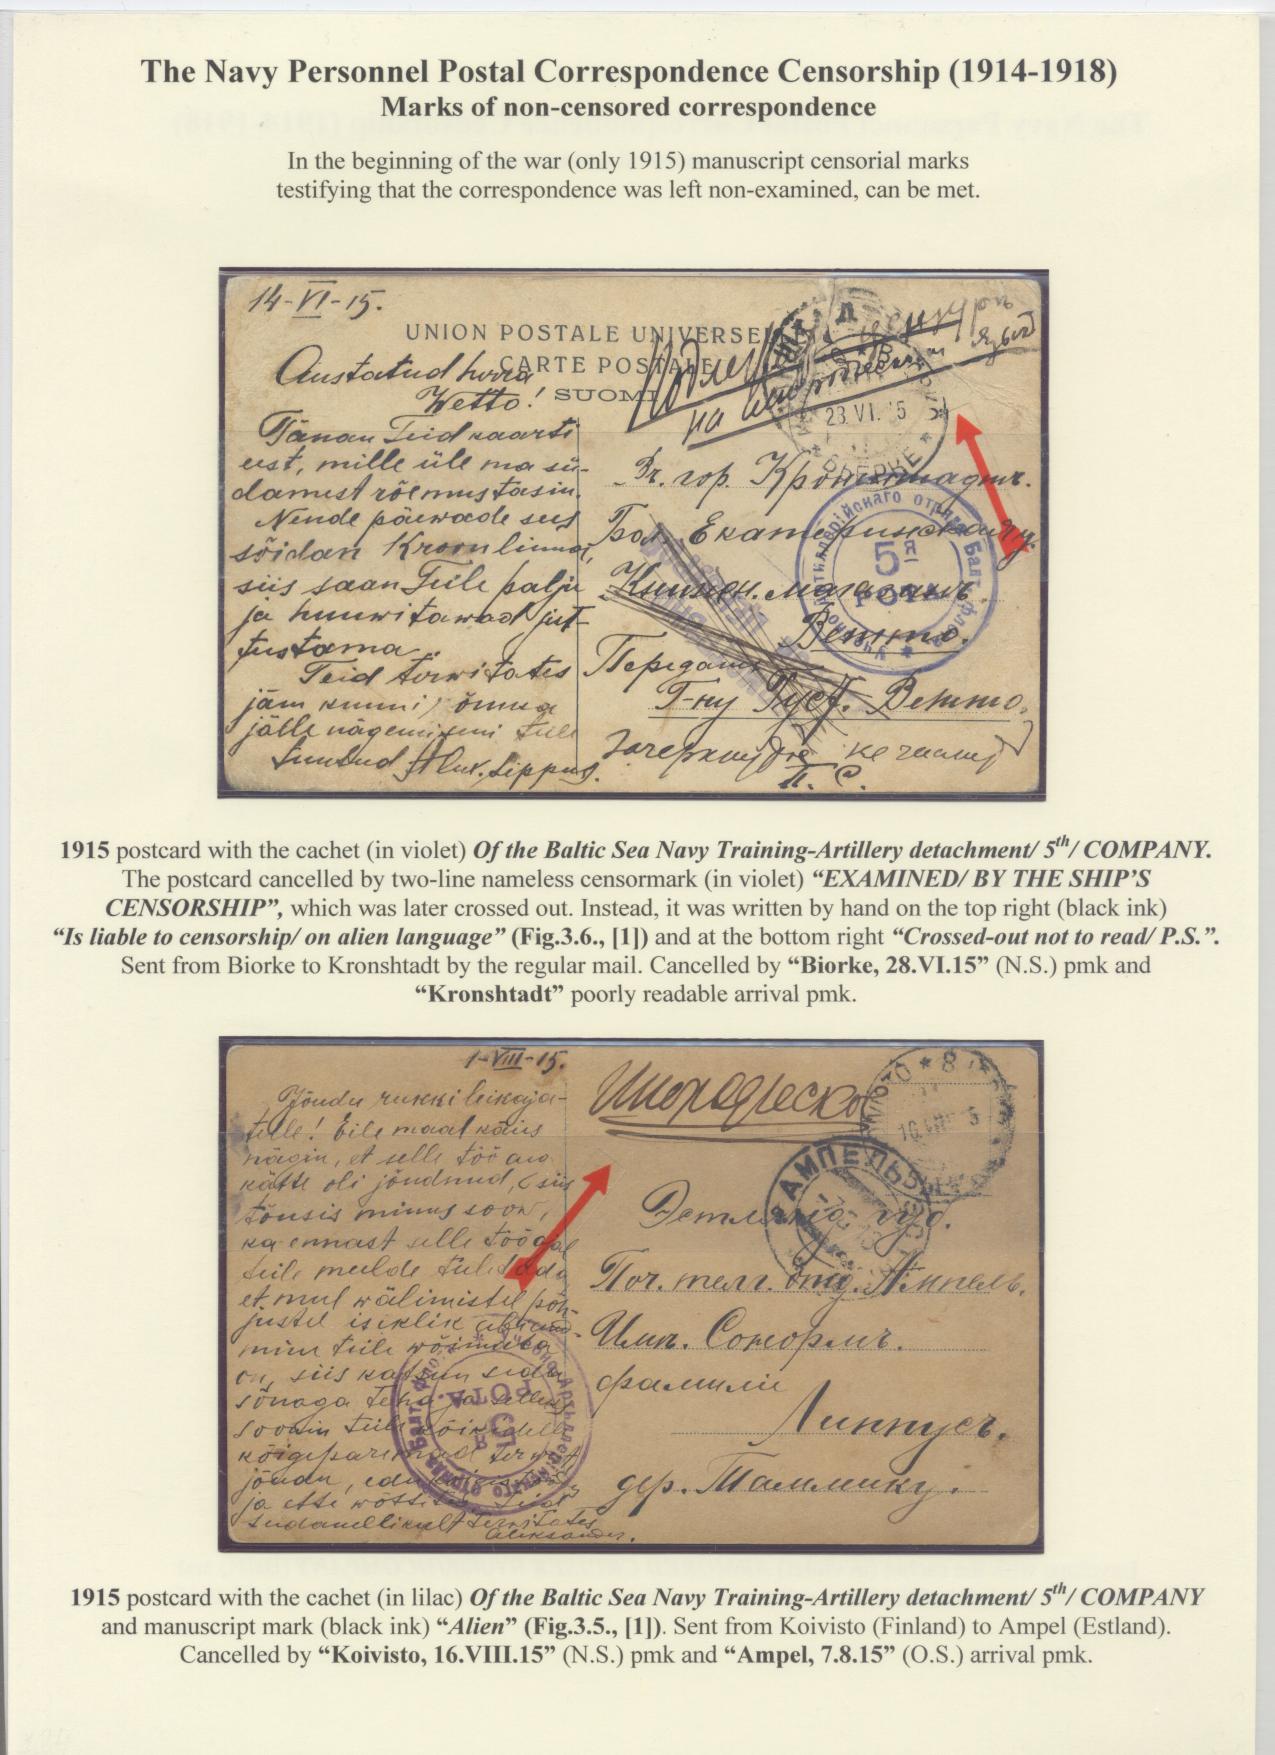 The Navy Personnel Postal Correspondence Censorship (1914-1918)
Marks of non-censored correspondence
In the beginning of the war (only 1915) manuscript censorial marks
testifying that the correspondence was left non-examined, can be met.
14-VI-15.
UNION POSTALE UNIVERSE
CARTE POSTALE
SUOMI
Austatud herra
Wetto!
Tänan Teid kaarti
eest, mille üle ma sü-
damest rõemustasin.
Nende päewade sees
sõidan Kroonlinna,
siis saan Teile palju
ja huwitawad jut-
tustama..
Teid terwitates
jään kunni õnneka
jälle nägemiseni teile
Alex. Lippus.
Подлежит цензуре
на инородческий язык
28 VI. 15
БІЕРКЕ
Въ гор. Кронштадтъ.
Бол. Екатерининская ул.
Книжн. магазинъ
Ветто.
Передать
Г-ну Густ. Ветто.
Зачеркнутое не читать
П. С.
Учебно-Артиллерійскаго отряда Балт. флота
5я
РОТА
1915 postcard with the cachet (in violet) Of the Baltic Sea Navy Training-Artillery detachment/ 5th/ COMPANY.
The postcard cancelled by two-line nameless censormark (in violet) “EXAMINED/ BY THE SHIP’S
CENSORSHIP”, which was later crossed out. Instead, it was written by hand on the top right (black ink)
“Is liable to censorship/ on alien language” (Fig.3.6., [1]) and at the bottom right “Crossed-out not to read/ P.S.”.
Sent from Biorke to Kronshtadt by the regular mail. Cancelled by “Biorke, 28.VI.15” (N.S.) pmk and
“Kronshtadt” poorly readable arrival pmk.
1-VIII-15.
Jõudu rukkileikaja-
tele! Eile maal käies
nägin, et selle töö au
kätte oli jõudnud, siis
tõusis minus soow,
ka ennast selle tööga
teile meelde tuletada
et mul wälimistel põh-
justel isiklik abiand-
mine teile wõimata
on, siis katsun seda
sõnaga teha ja selleks
soowin teile kõikidele
kõigeparemad terwist
jõudu,
ja ette wõttes. Teid
südamelikult terwitates
Aleksander.
Инородческо
АМПЕЛЬ
Эстляндс. губ.
Поч. телг. отд. Ампель.
Имн. Сонормъ.
фамили
Липпусъ.
дер. Таммику.
Учебно-Артиллерійскаго отряда Балт. флота
5я
РОТА.
1915 postcard with the cachet (in lilac) Of the Baltic Sea Navy Training-Artillery detachment/ 5th/ COMPANY
and manuscript mark (black ink) “Alien” (Fig.3.5., [1]). Sent from Koivisto (Finland) to Ampel (Estland).
Cancelled by “Koivisto, 16.VIII.15” (N.S.) pmk and “Ampel, 7.8.15” (O.S.) arrival pmk.